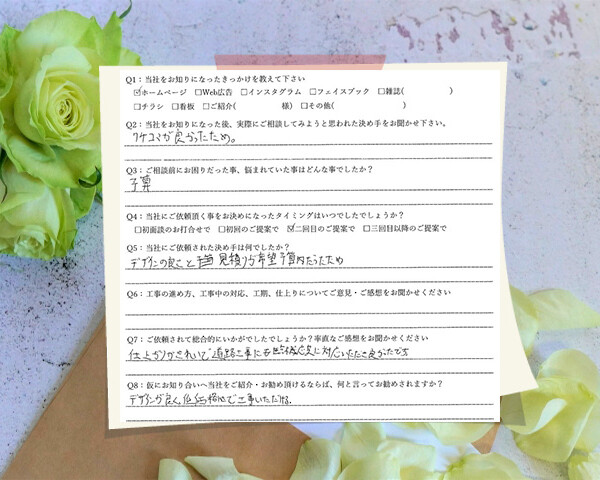 Q1：当社をお知りになったきっかけを教えて下さい
☑ホームページ □Web広告 □インスタグラム □フェイスブック □雑誌( )
□チラシ □看板 □ご紹介( 様) □その他( )
Q2：当社をお知りになった後、実際にご相談してみようと思われた決め手をお聞かせ下さい。
クチコミが良かったため。
Q3：ご相談前にお困りだった事、悩まれていた事はどんな事でしたか？
予算
Q4：当社にご依頼頂く事をお決めになったタイミングはいつでしたでしょうか？
□初面談のお打合せで □初回のご提案で ☑二回目のご提案で □三回目以降のご提案で
Q5：当社にご依頼された決め手は何でしたか？
デザインの良さと 見積りが希望予算内だったため
Q6：工事の進め方、工事中の対応、工期、仕上りについてご意見・ご感想をお聞かせください
Q7：ご依頼されて総合的にいかがでしたでしょうか？率直なご感想をお聞かせください
仕上がりがきれいで 道路工事にも 対応いただき良かったです
Q8：仮にお知り合いへ当社をご紹介・お勧め頂けるならば、何と言ってお勧めされますか？
デザインが良く、低価格で工事いただける。